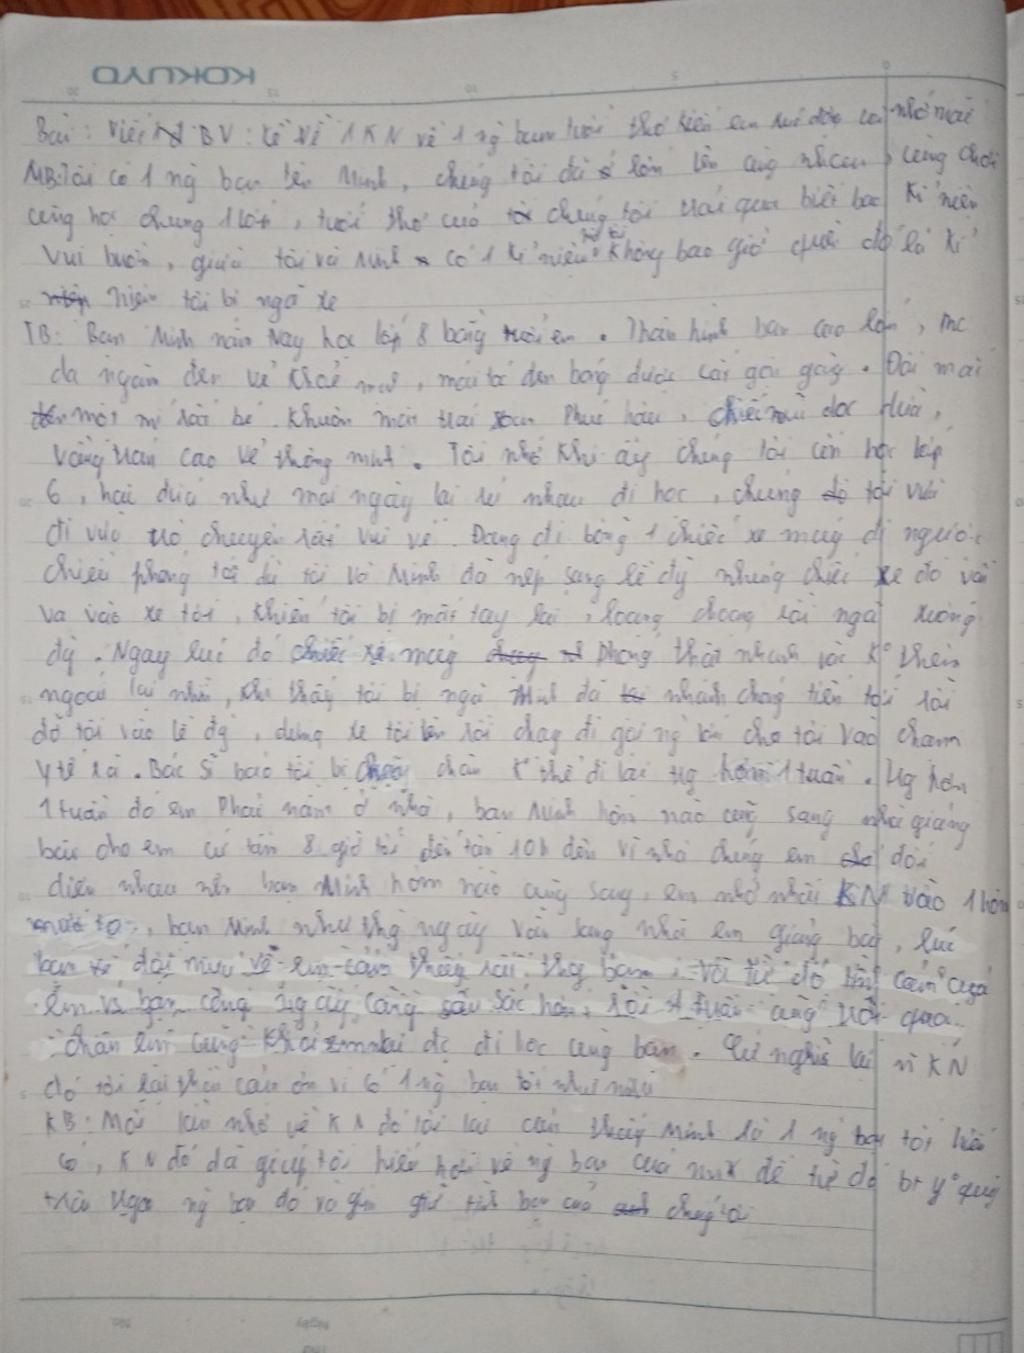 KOKUYO
Bài: Viết BV: kể về 1 KN về 1 ng bạn tuổi thơ khiến em xúc động và nhớ mãi
MB: Tôi có 1 ng bạn tên Minh, chúng tôi đã lớn lên cùng nhau, cùng chơi
cùng học chung 1 lớp, tuổi thơ của chúng tôi trải qua biết bao kỉ niệm
vui buồn, giữa tôi và Minh có 1 kỉ niệm không bao giờ quên đó là kỉ
niệm tôi bị ngã xe
TB: Bạn Minh năm nay học lớp 8 bằng tuổi em. Thân hình bạn cao lớn,
da ngăm đen vẻ khoẻ, mái tóc đen bóng được cắt gọn gàng. Đôi mắt
một mí rất bé. Khuôn mặt trái xoan phúc hậu, chiếc mũi dọc dừa,
vầng trán cao vẻ thông minh. Tôi nhớ khi ấy chúng tôi còn học lớp
6, hai đứa như mọi ngày lại rủ nhau đi học, chúng tôi vừa
đi vừa trò chuyện rất vui vẻ. Đang đi bỗng 1 chiếc xe máy đi ngược
chiều phóng tới dù tôi và Minh đã nép sang lề đg nhưng chiếc xe đó vẫn
va vào xe tôi, khiến tôi bị mất tay lái, loạng choạng rồi ngã xuống
đg. Ngay lúc đó chiếc xe máy phóng thật nhanh rồi k thèm
ngoái lại nhìn, khi thấy tôi bị ngã Minh đã nhanh chóng tiến tới rồi
đỡ tôi vào lề đg, dựng xe tôi lên rồi chạy đi gọi ng lớn cho tôi vào chạm
y tế xã. Bác sĩ bảo tôi bị chân k thể đi lại tg hơn 1 tuần. Tg hơn
1 tuần đó em phải nằm ở nhà, bạn Minh hôm nào cũng sang nhà giảng
bài cho em cứ tầm 8 giờ tối đến tận 10h đêm vì nhà chúng em đối
diện nhau nên bạn Minh hôm nào cũng sang, em nhớ nhất KN vào 1 hôm
mưa to, bạn Minh như thg ngày vẫn sang nhà em giảng bài, lúc
bạn đội mưa về em cảm thấy rất thg bạn, và từ đó tình cảm của
em và bạn cũng ngày càng sâu sắc hơn, rồi 1 tuần cũng trôi qua
chân em cũng khỏi đc đi học cùng bạn. Cứ nghĩ lại KN
đó tôi rất thầm cảm ơn vì có 1 ng bạn tốt như
KB: Mỗi lần nhớ về KN đó tôi lại cảm thấy Minh là 1 ng bạn tốt hiếm
có, KN đó đã giúp tôi hiểu hơn về ng bạn của mk để từ đó bt quý
trân trọng ng bạn đó và gìn giữ tình bạn của chúng tôi